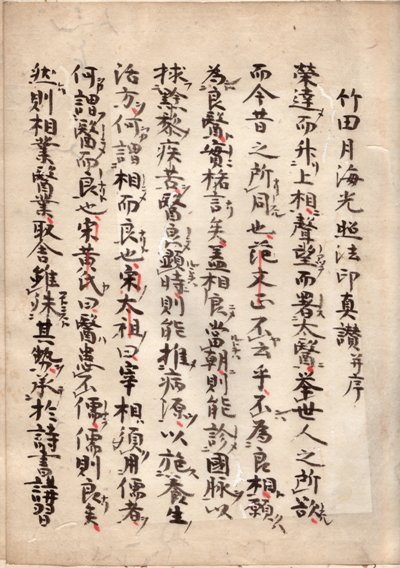 竹田月海光照法印真讚并序
榮達而升上相聲望而署太醫舉世人之所欲
而今昔之所同也范文正不云乎不為良相願
為良醫實格言矣盖相良當朝則能診國脉以
拯黔黎疾苦醫良顯時則能推病源以施養生
治方何謂相而良也宋太祖曰宰相須用儒者
何謂醫而良也宋黄氏曰醫患不儒儒則良矣
然則相業醫業取舎雖殊其欽承於詩書講習